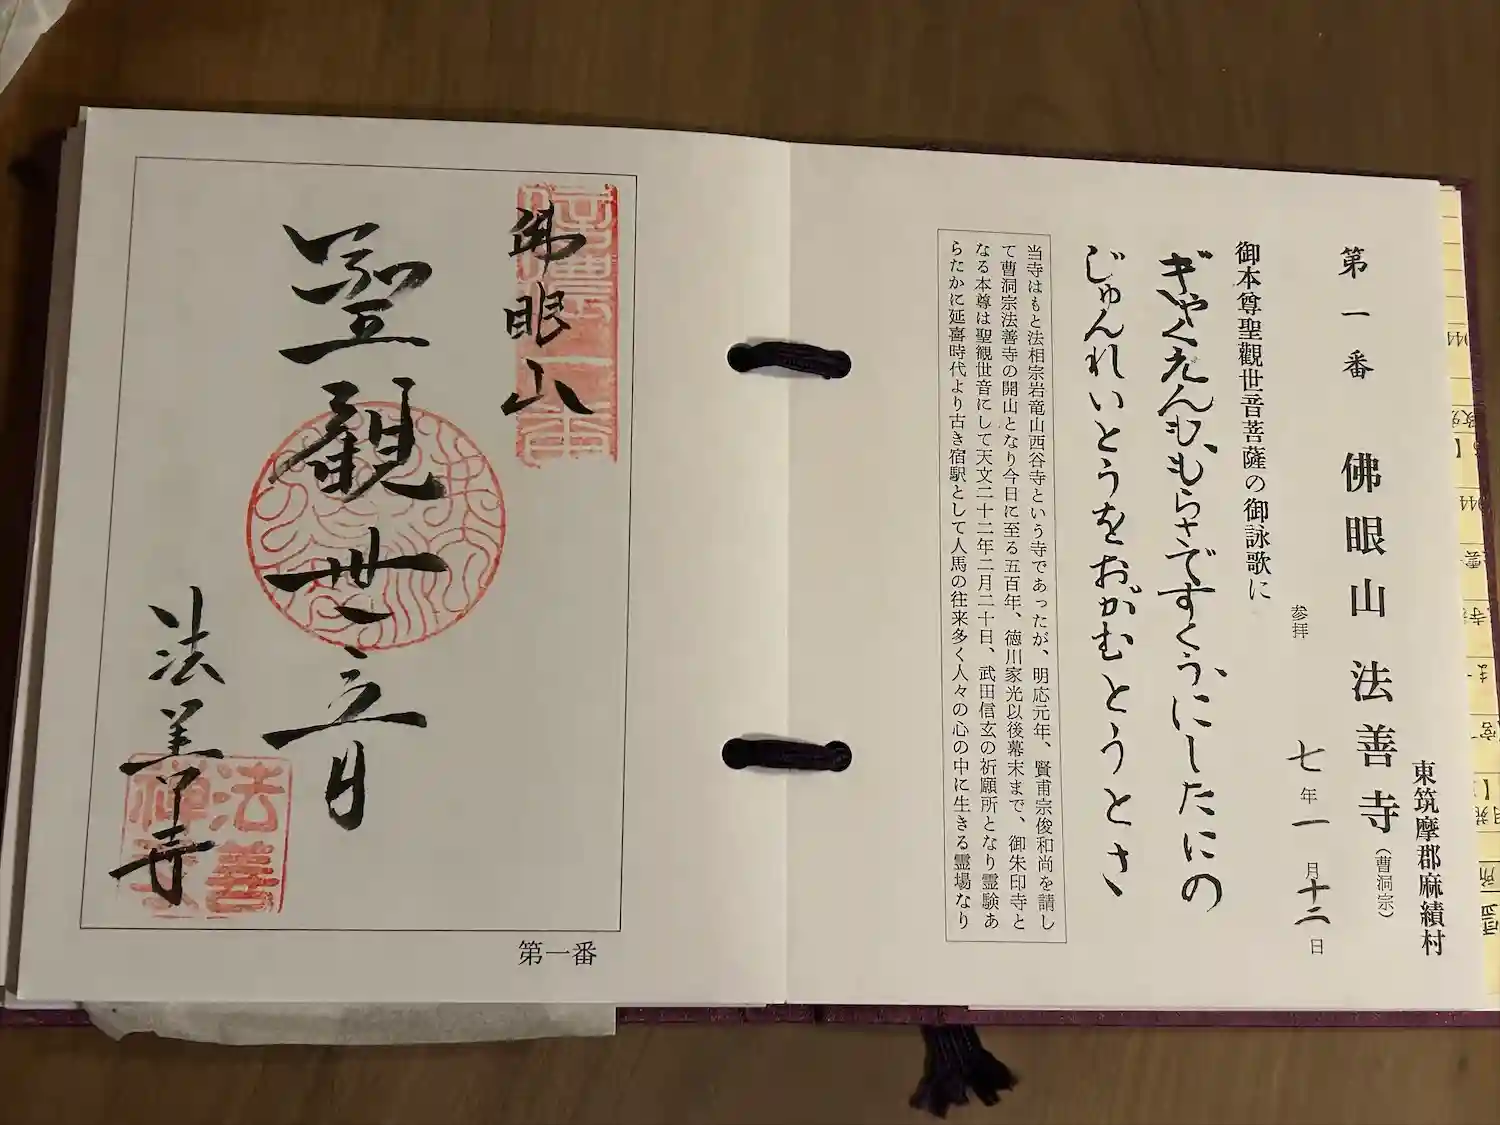 東筑摩郡麻績村
第一番 佛眼山 法善寺(曹洞宗)
参拝 七年一月十二日
御本尊聖觀世音菩薩の御詠歌に
ぎゃくえんも、もらさですくう、にしたにの
じゅんれいとうをおがむとうとさ
当寺はもと法相宗岩竜山西谷寺という寺であったが、明応元年、賢甫宗俊和尚を請し
て曹洞宗法善寺の開山となり今日に至る五百年、徳川家光以後幕末まで、御朱印寺と
なる本尊は聖観世音にして天文二十二年二月二十日、武田信玄の祈願所となり霊験あ
らたかに延喜時代より古き宿駅として人馬の往来多く人々の心の中に生きる霊場なり
佛眼山
聖観世音
法善寺
第一番